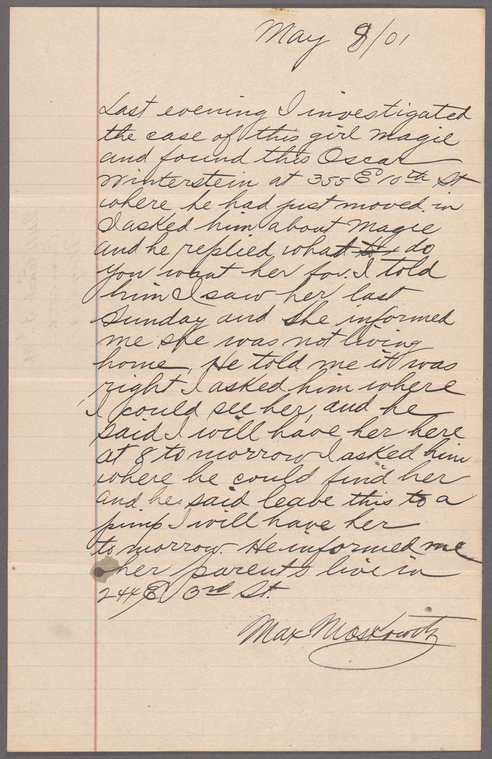 May 8/01
Last evening I investigated
the case of this girl Magie
and found this Oscar
Winterstein at 355 E 10th St
where he had just moved in
I asked him about Magie
and he replied what do
you want her for. I told
him I saw her last
Sunday and she informed
me she was not living
home, He told me it was
right I asked him where
I could see her, and he
said I will have her here
at 8 to morrow I asked him
where he could find her
and he said leave this to a
pimp I will have her
to morrow. He informed me
her parents live in
244 E 3rd St.
Max Moskowitz